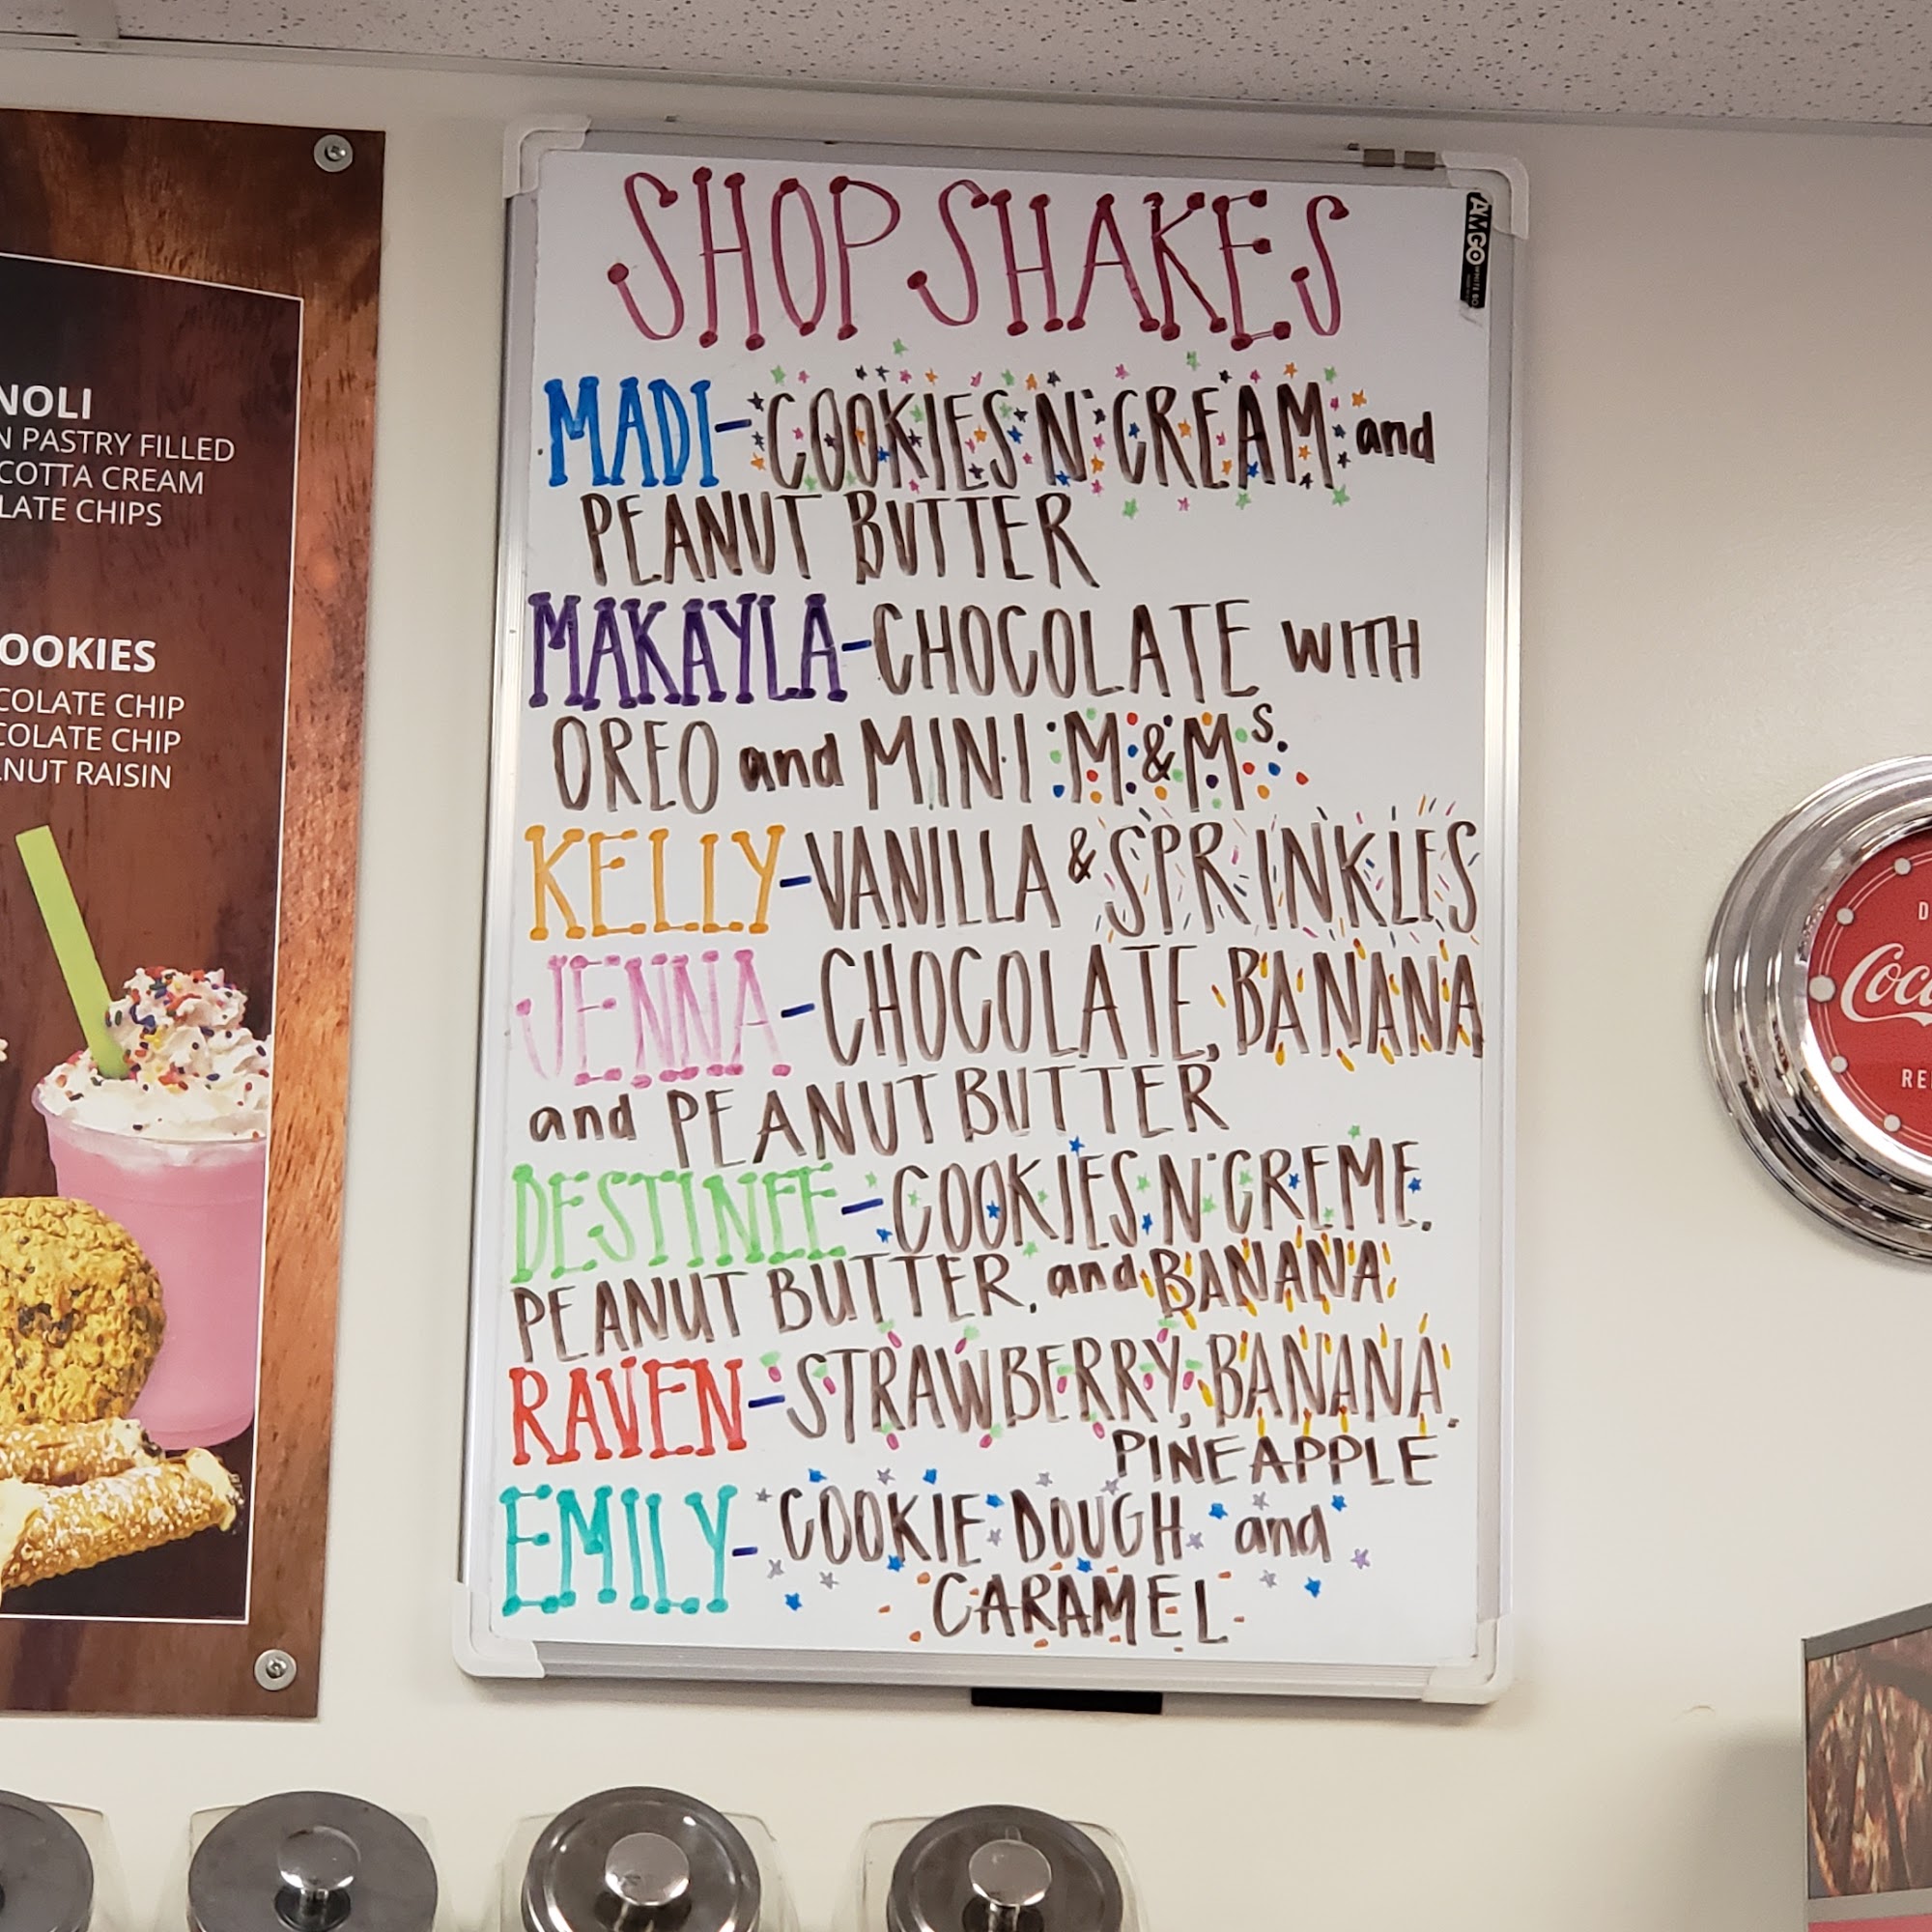 NOLI
N PASTRY FILLED
COTTA CREAM
LATE CHIPS
OOKIES
COLATE CHIP
COLATE CHIP
NUT RAISIN
SHOP SHAKES
AMGO
MADI-COOKIES N' CREAM and
PEANUT BUTTER
MAKAYLA-CHOCOLATE WITH
OREO and MINI M&Ms
KELLY-VANILLA & SPRINKLES
JENNA-CHOCOLATE, BANANA
and PEANUT BUTTER
DESTINEE-COOKIES N' CREME,
PEANUT BUTTER, and BANANA
RAVEN-STRAWBERRY, BANANA,
PINEAPPLE
EMILY-COOKIE DOUGH and
CARAMEL
D
Coca
RE